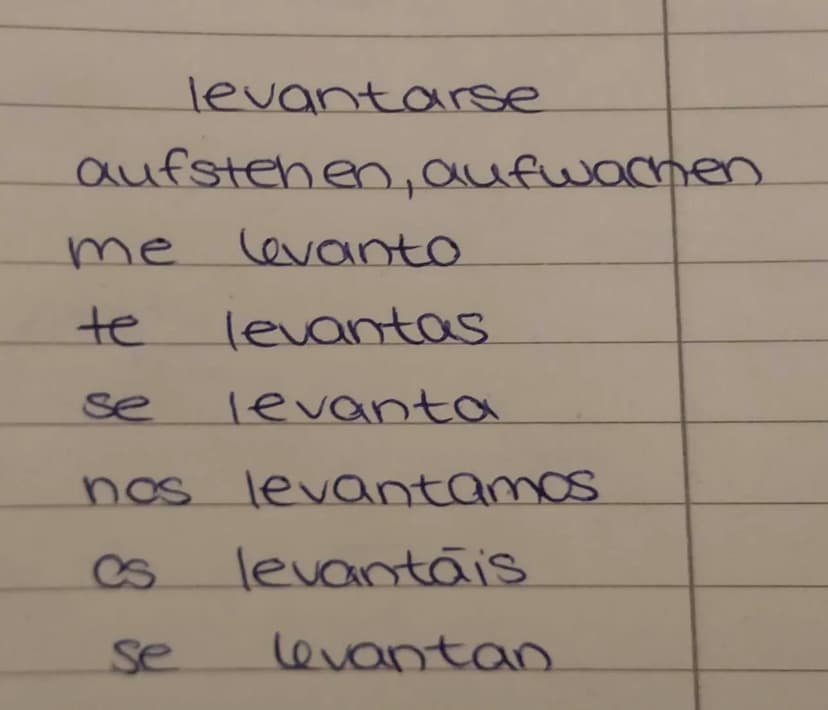 levantarse
aufstehen, aufwachen
me levanto
te levantas
se levanta
nos levantamos
os levantāis
se levantan